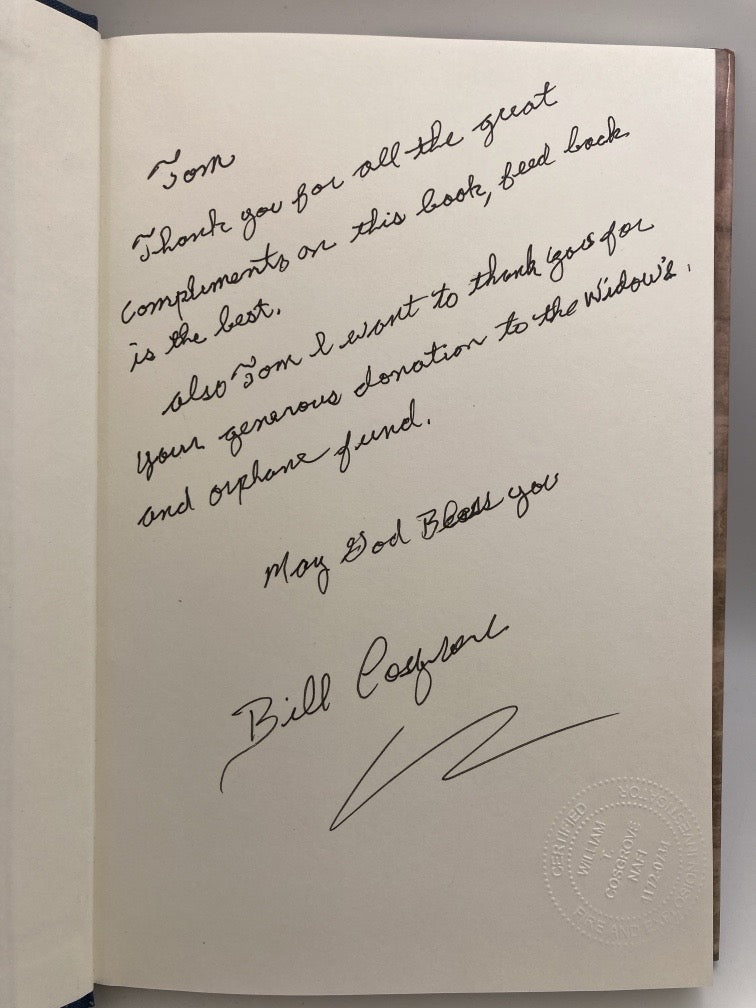 Tom
Thank you for all the great
compliments on this book, feed back
is the best.
also Tom I want to thank you for
your generous donation to the Widow's
and orphans fund.
May God Bless you
Bill Cosgrove
CERTIFIED FIRE AND EXPLOSION INVESTIGATOR
WILLIAM
F.
COSGROVE
NAFI